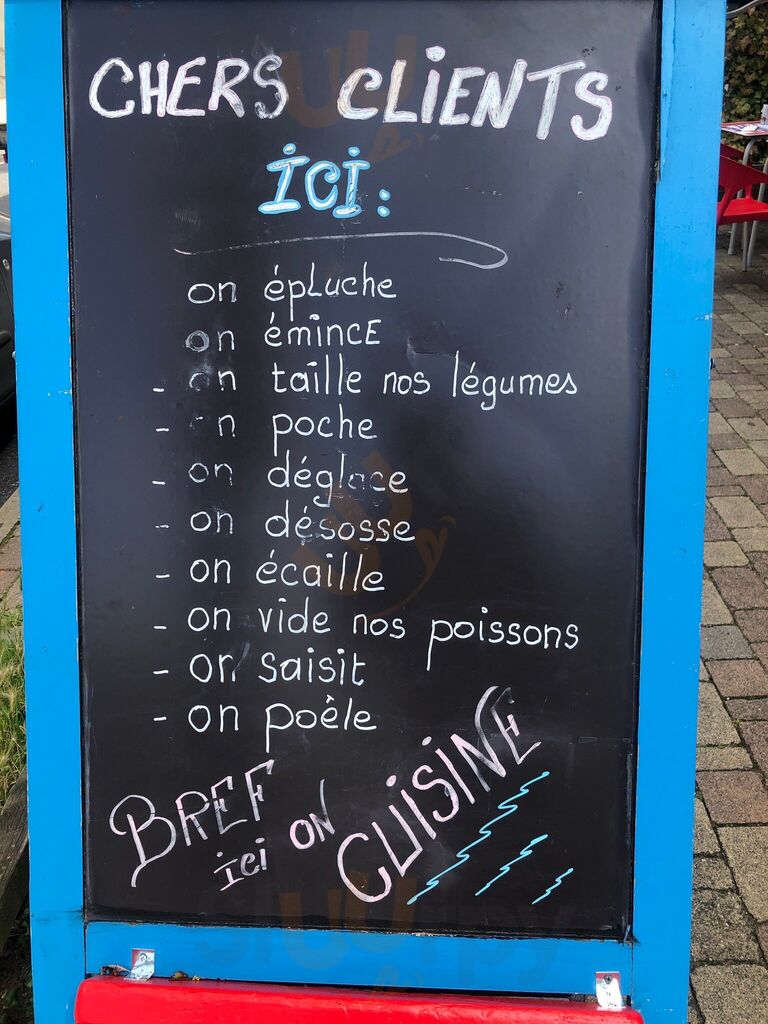 CHERS CLIENTS
ICI:
on épluche
on émince
- on taille nos légumes
- on poche
- on déglace
- on désosse
- on écaille
- on vide nos poissons
- on saisit
- on poêle
BREF
ici on CUISINE